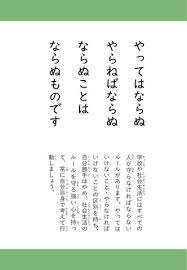 やってはならぬ
やらねばならぬ
ならぬことは
ならぬものです
学校や社会生活にはすべての
人が守らなければならない
ルールがあります。やっては
いけないこと・やらなければ
いけないことの区別を持ち、
自分勝手はやめ、社会生活の
ルールを守る強い心を持っ
て、常に自分自身で考えて行
動しましょう。